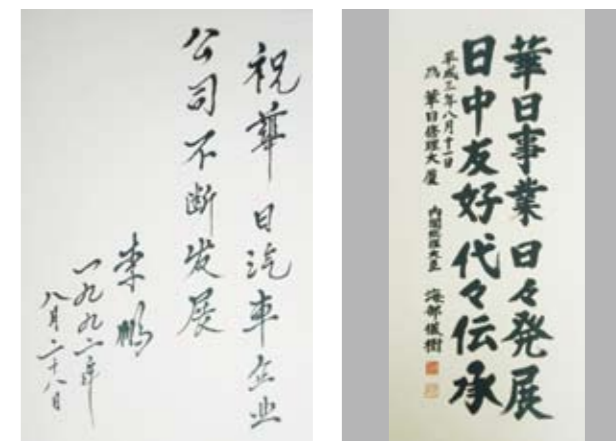 祝華日汽車企业
公司不断发展
李鹏
一九九二年
八月二十八日
華日事業日々発展
日中友好代々伝承
平成三年八月十一日
為華日修理大厦
内閣総理大臣 海部俊樹